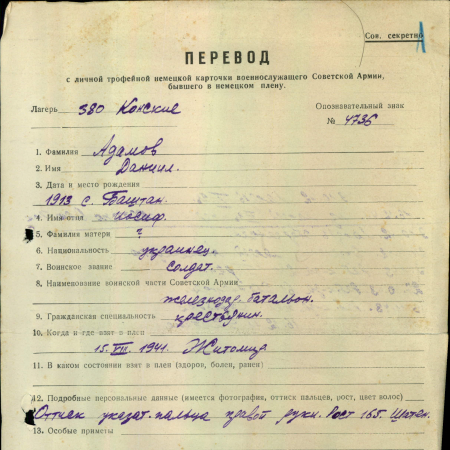 Сов. секретно
ПЕРЕВОД
с личной трофейной немецкой карточки военнослужащего Советской Армии,
бывшего в немецком плену.
Лагерь 380 Конские
Опознавательный знак
№ 4736
1. Фамилия Адамов
2. Имя Даниил.
3. Дата и место рождения
1913 с. Баштан.
4. Имя отца Иосиф.
5. Фамилия матери ?
6. Национальность украинец
7. Воинское звание солдат.
8. Наименование воинской части Советской Армии
железнодор. батальон.
9. Гражданская специальность крестьянин.
10. Когда и где взят в плен
15. VII. 1941. Житомир
11. В каком состоянии взят в плен (здоров, болен, ранен)
12. Подробные персональные данные (имеется фотография, оттиск пальцев, рост, цвет волос)
Оттиск указат. пальца правой руки. Рост 165.
13. Особые приметы